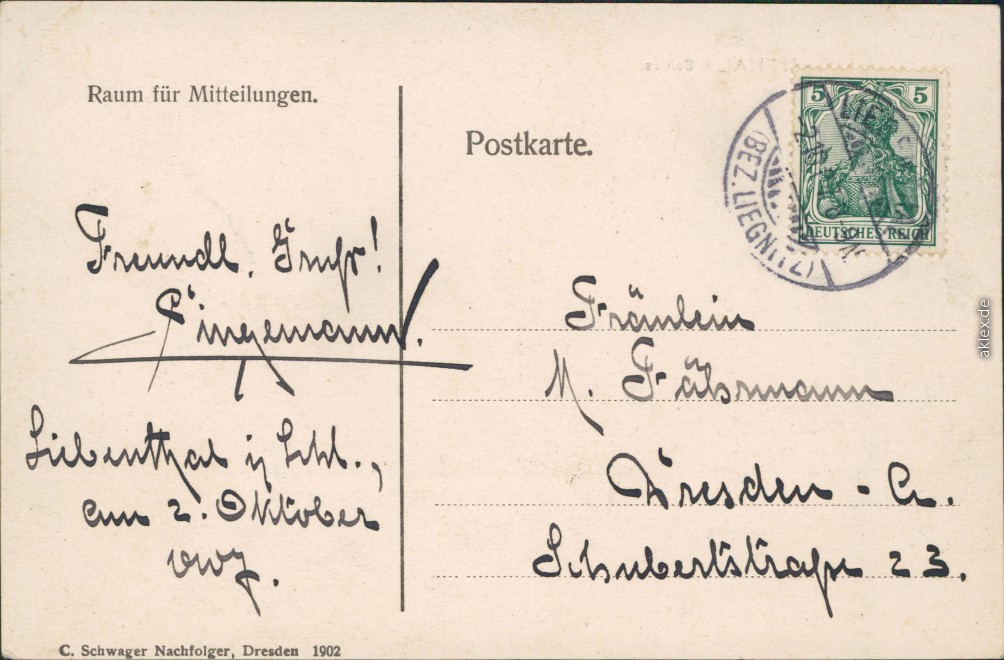 Raum für Mitteilungen.
Postkarte.
5 5
DEUTSCHES REICH
(BEZ. LIEGNITZ)
Freundl. Gruß!
Lingemann.
Liebenthal i/ Schl.,
am 2. Oktober
Fräulein
M. Fährmann
Dresden - A.
Schubertstraße 23.
C. Schwager Nachfolger, Dresden 1902
aklex.de